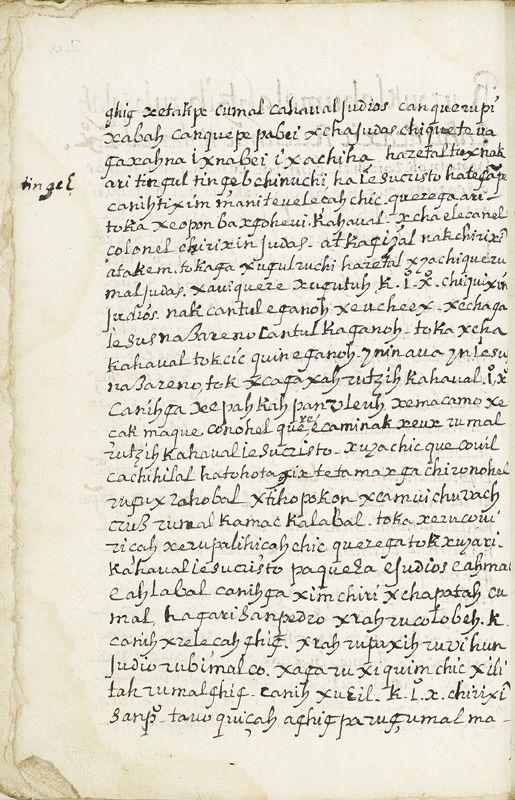 ghig xetakpe cumal cahaval Judios canquerupi
xabah canquepe pabei xcha Judas chiquete va
gaxahna ixnabei ixachiha hazetal tuxnak
tingeξ
ari tingul tingeb chinuchi ha iesucristo
canihtixim manitevelecah chic. querega ari-
toka xeopon baxgohevi. Kahaval - xcha elecanel
colonel chirixin Judas - atkagizal nak chirixi
atakem. tokaga xugul ruchi hazetal xyachiqueru
mal Judas. xaviquere xugutuh K. I. X. chiquixin
Judios. nak cantul eganoh xeucheex - xechaga
Iesus naзareno cantul kaganoh - toka xcha
Kahaval tokcic quineganoh - ynin ava yn Iesu
naзareno tok xcagaxah rutzih Kahaval. I. X
canihga xepah kah pan uleuh xemacamo xe
cak maque conohel quere caminak xeux rumal
rutzih Kahaval Iesucristo - xuya chic que covil
cachihilal hatohota teta maxga chi ronohel
rugux rahobal xtiho pokon xcamvi chuvach
cruз rumal kamac kalabal. toka xerucovi
ricah xerupalihicah chic querega tok xuyari.
Kahaval Iesucristo paqueза e Judios eahmac
e ahlabal canihga xim chiri xchapatah cu
mal, hagari San pedro xrah rucolobeh. K.
canih xrelecah ghig. xrah rupaxih ruvi hun
Judio rubi malco. xaga ruxiquim chic xili
tah rumal ghig. canih xuξil. K. I. X. chirixi
San po - tavoquicah aghig parugumal ma-